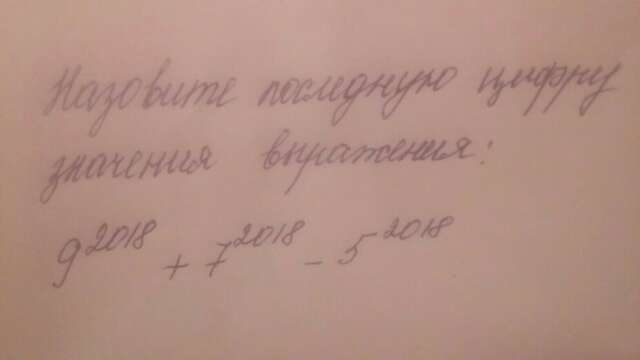 Назовите последнюю цифру
значения выражения:
9^2018 + 7^2018 - 5^2018